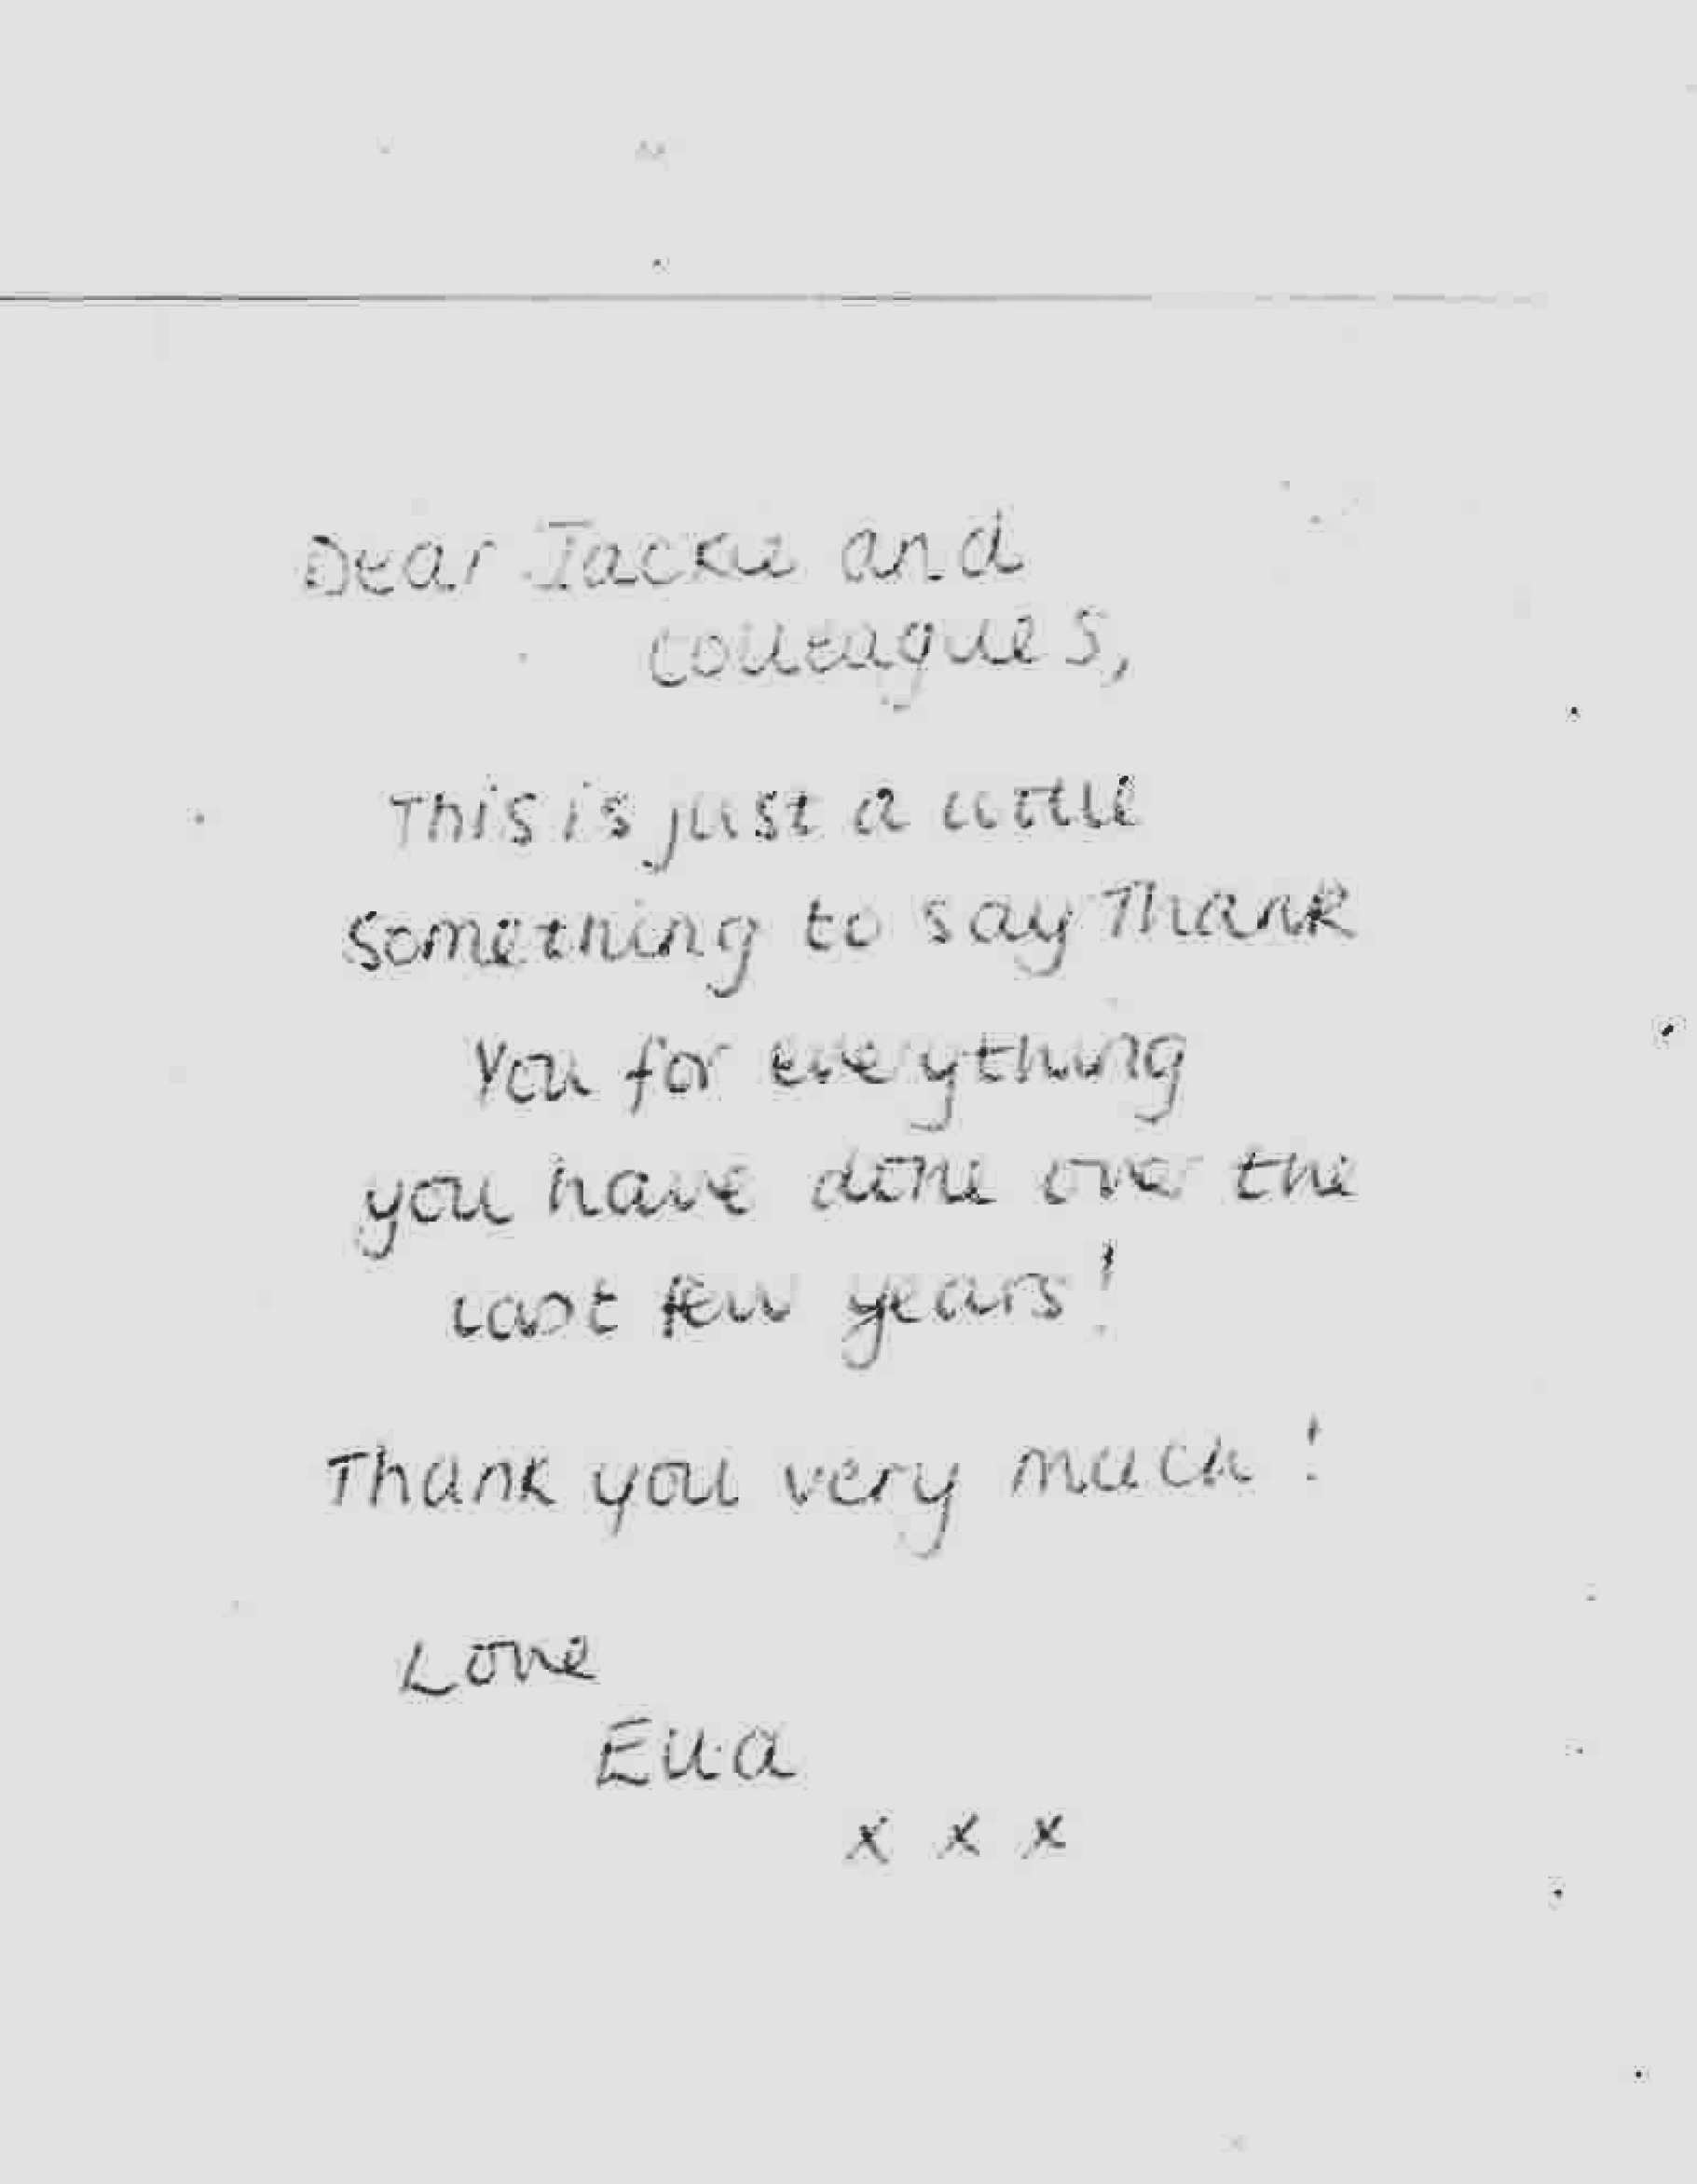 Dear Jackie and
colleagues,
This is just a little
something to say Thank
You for everything
you have done over the
last few years!
Thank you very much!
Love
Ella
x x x